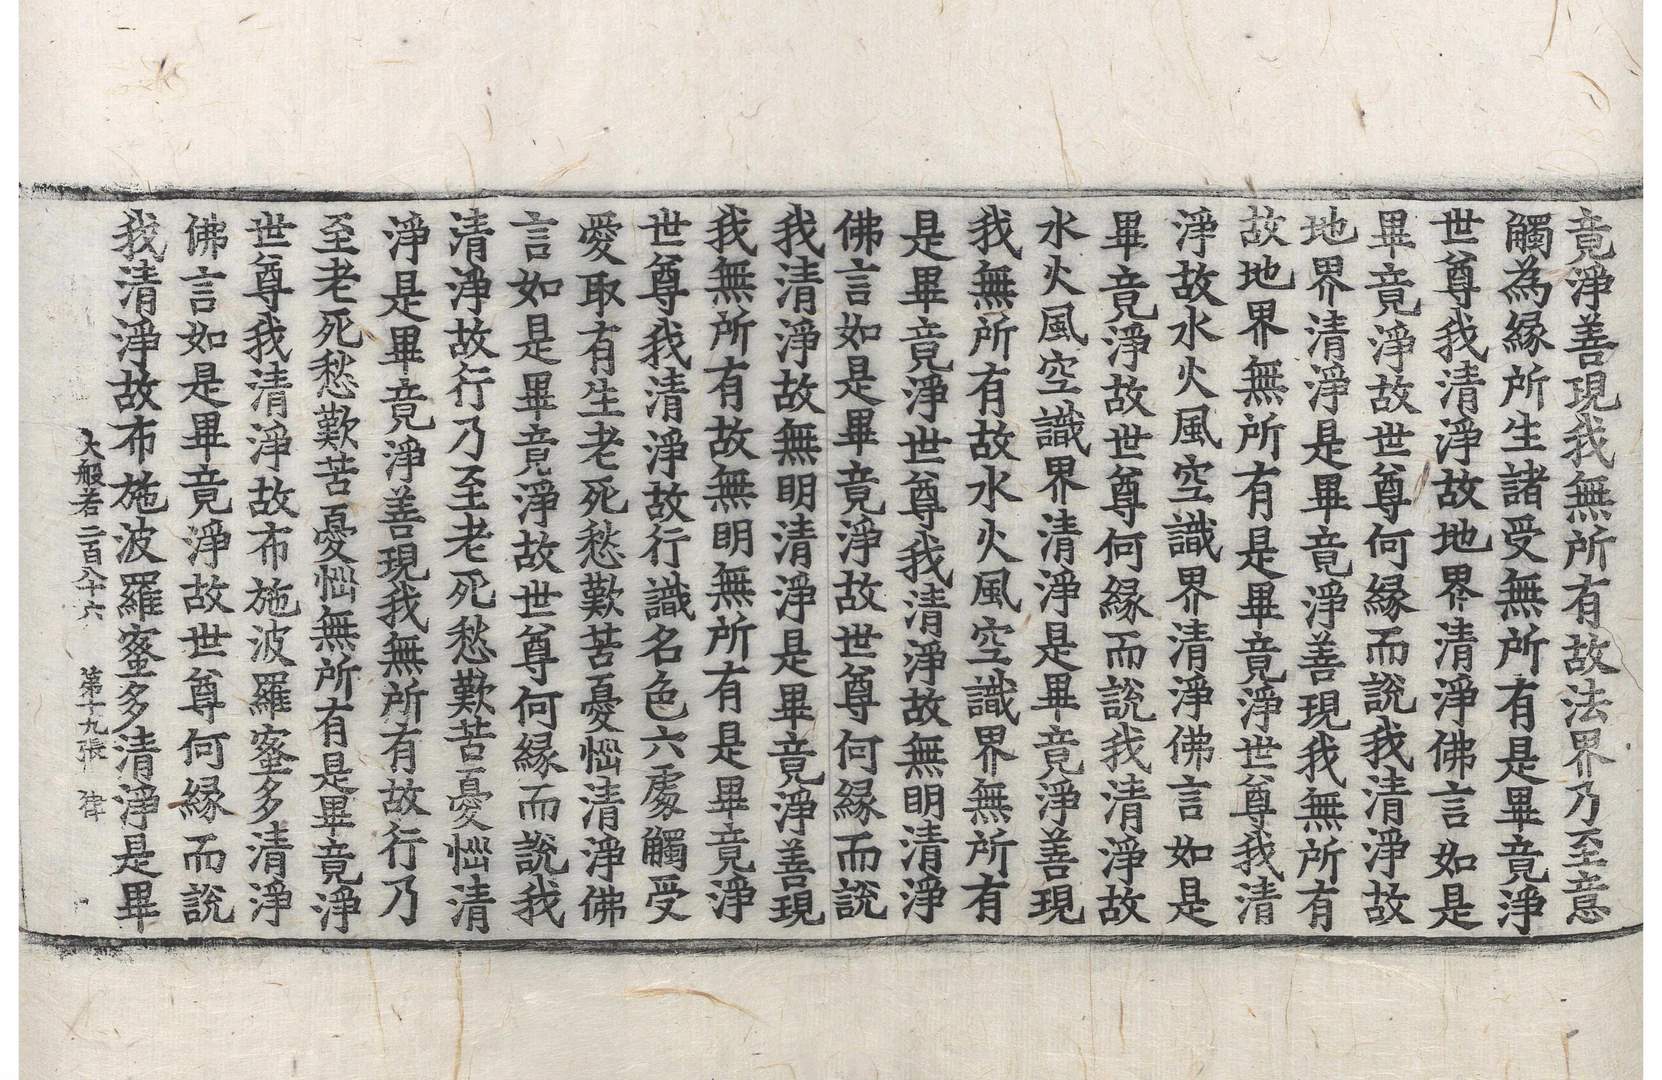 竟淨善現我無所有故法界乃至意
觸為緣所生諸受無所有是畢竟淨
世尊我清淨故地界清淨佛言如是
畢竟淨故世尊何緣而說我清淨故
地界清淨是畢竟淨善現我無所有
故地界無所有是畢竟淨世尊我清
淨故水火風空識界清淨佛言如是
畢竟淨故世尊何緣而說我清淨故
水火風空識界清淨是畢竟淨善現
我無所有故水火風空識界無所有
是畢竟淨世尊我清淨故無明清淨
佛言如是畢竟淨故世尊何緣而說
我清淨故無明清淨是畢竟淨善現
我無所有故無明無所有是畢竟淨
世尊我清淨故行識名色六處觸受
愛取有生老死愁歎苦憂惱清淨佛
言如是畢竟淨故世尊何緣而說我
清淨故行乃至老死愁歎苦憂惱清
淨是畢竟淨善現我無所有故行乃
至老死愁歎苦憂惱無所有是畢竟淨
世尊我清淨故布施波羅蜜多清淨
佛言如是畢竟淨故世尊何緣而說
我清淨故布施波羅蜜多清淨是畢
大般若二百八十六 第十九張 律